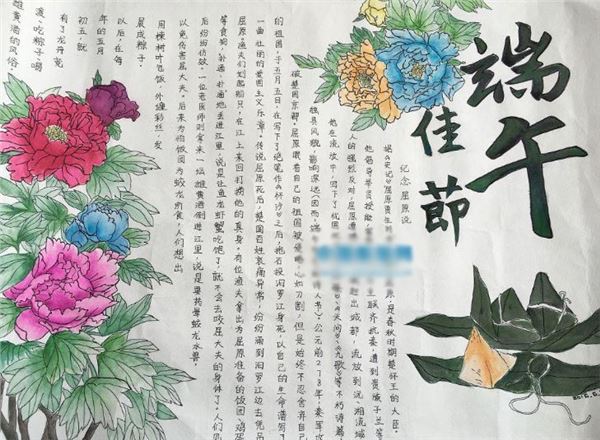 端午
佳節
纪念屈原说
据《史记》屈原贾生列 屈原,是春秋时期楚怀王的大臣。
他倡导举贤授能, 主联齐抗秦遭到贵城子兰等
人的强烈反对,屈原遭 赶出城都,流放到沅、湘流域
他在流放中,写下了忧国 《天问》、《九歌》等不朽诗篇
独具风貌,影响深远(因而,端 诗人节)。公元前278年,秦军攻
破楚国京都。屈原眼看自己的祖国被侵略,心如刀割,但是始终不忍舍弃自己
的祖国,于五月五日,在写下了绝笔作《怀沙》之后,抱石投汨罗江身死,以自己的生命谱写了
一曲壮丽的爱国主义乐章。传说屈原死后,楚国百姓哀痛异常,纷纷涌到汨罗江边去凭吊
屈原。渔夫们划起船只,在江上来回打捞他的真身。有位渔夫拿出为屈原准备的饭团、鸡蛋
等食物,扑通、扑通地丢进江里,说是让鱼龙虾蟹吃饱了,就不会去咬屈大夫的身体了。人们见
后纷纷仿效。一位老医师则拿来一坛雄黄酒倒进江里,说是要药晕蛟龙水兽,
以免伤害屈大夫。后来为怕饭团为蛟龙所食,人们想出
用楝树叶包饭,外缠彩丝,发
展成粽子。
以后,在每
年的五月
初五,就
有了龙舟竞
渡、吃粽子、喝
雄黄酒的风俗。